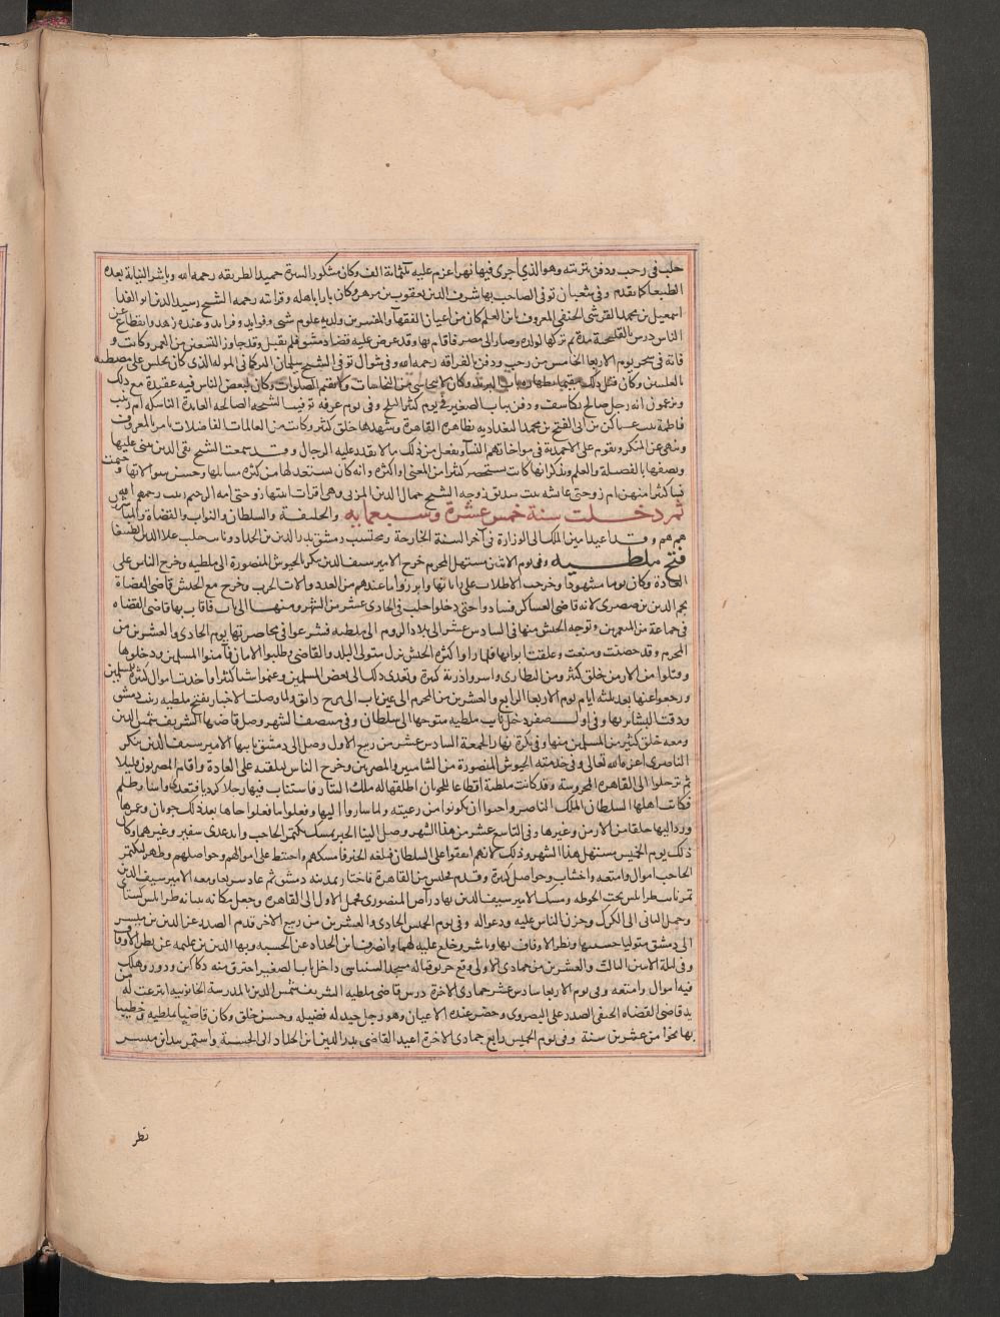 حلب في رجب ودفن بتربته وهو الذي اجرى فيها نهرا غرم عليه ثلثمائة الف وكان مشكور السيرة حميد الطريقه رحمه الله وباشر النيابة بعده
الطنبغا كما تقدم وفي شعبان توفي الصاحب بها شرف الدين يعقوب بن مزهر وكان بارا باهله وقرابته رحمه الشيخ رشيد الدين ابو الفدا
اسمعيل بن محمد القرشي الحنفي المعروف بابن المعلم كان من اعيان الفقها والمفسرين ولديه علوم شتى وفوايد وفرايد وعنده زهد وانقطاع عن
الناس درس بالبلخية مدة ثم تركها لولده وصار الى مصر فاقام بها وقد عرض عليه قضا دمشق فلم يقبل وقد جاوز التسعين من العمر وكانت و
فاته في سحر يوم الاربعا الخامس من رجب ودفن القرافه رحمه الله وفي شوال توفي الشيخ سليمان التركماني الموله الذي كان يجلس على مصطبه
بالعلبيين وكان قبل ذلك مقيما بطهارة باب البريد وكان لا يتحاشى من النجاسات ولا يقيم الصلوات وكان لبعض الناس فيه عقيدة مع ذلك
ويزعمون انه رجل صالح يكاشف ودفن بباب الصغير في يوم كثير الثلج وفي يوم عرفه توفيت الشيخه الصالحه العابدة الناسكه ام زينب
فاطمة بنت عباس بن ابي الفتح بن محمد البغداديه بظاهر القاهرة وشهدها خلق كثير وكانت من العالمات الفاضلات تامر بالمعروف
وتنهى عن المنكر وتقوم على الاحمدية في مواخاتهم النسا وتفعل من ذلك ما لا يقدر عليه الرجال وقد سمعت الشيخ تقي الدين يثني عليها
ويصفها بالفضيلة والعلم ويذكر انها كانت تستحضر كثيرا من المغني او اكثره وانه كان يستعد لها من كثرة مسايلها وحسن سوالاتها و ختمت
نسا كثيرا منهن ام زوجتي عائشه بنت صديق زوجه الشيخ جمال الدين المزي وهي اقرات ابنتها زوجتي امة الرحيم زينب رحمهم الله
ثم دخلت سنة خمس عشرة وسبعمايه والخليفة والسلطان والنواب والقضاة والمباشرون
هم هم وقد اعيد امين الملك الى الوزارة في آخر السنة الخارجة ومحتسب دمشق بدر الدين بن الحداد ونايب حلب علا الدين الطنبغا
فتح ملطيه وفي يوم الاثنين مستهل المحرم خرج الامير سيف الدين تنكز في الجيوش المنصورة الى ملطيه وخرج الناس على
العادة وكان يوما مشهودا وخرجت الاطلاب على راياتها وابرزوا ما عندهم من العدد والات الحرب وخرج مع الجيش قاضي القضاة
نجم الدين بن صصرى لانه قاضي العساكر فساروا حتى دخلوا حلب في الحادي عشر من الشهر ومنها الى باب فاقاب بها قاضي القضاه
في جماعة من المتعممين وتوجه الجيش منها في السادس عشر الى بلاد الروم الى ملطيه فشرعوا في محاصرتها يوم الحادي والعشرين من
المحرم وقد حصنت ومنعت وغلقت ابوابها فلما راوا كثرة الجيش نزل متولي البلد والقاضي وطلبوا الامان فآمنوا المسلمين ودخلوها
وقتلوا من الارمن خلق كثير ومن النصارى واسروا ذرية كبيرة وتعدى ذلك الى بعض المسلمين وغنموا شيا كثيرا واخذت اموال كثيرة للمسلمين
ورجعوا عنها بعد ثلثه ايام يوم الاربعا الرابع والعشرين من المحرم الى عين تاب الى مرج دابق ولما وصلت الاخبار بفتح ملطيه زينت دمشق
ودقت البشاير بها وفي اول صفر دخل نايب ملطيه متوجها الى سلطان وفي منتصف الشهر وصل قاضيها الشريف شمس الدين
ومعه خلق كثير من المسلمين منها وفي بكرة نهار الجمعة السادس عشر من ربيع الاول وصل الى دمشق نايبها الامير سيف الدين تنكز
الناصري اعزه الله تعالى وفي خدمته الجيوش المنصورة من الشاميين والمصريين وخرج الناس لتلقيه على العادة واقام المصريون قليلا
ثم ترحلوا الى القاهرة المحروسة وقد كانت ملطية اقطاعا للجوبان اطلقها له ملك التتار فاستناب فيها رجلا كرديا فتعدى واسا وظلم
فكاتب اهلها السلطان الملك الناصر واحبوا ان يكونوا من رعيته ولما ساروا اليها وفعلوا ما فعلوا جاها بعد ذلك جوبان وعمرها
ورد اليها خلقا من الارمن وغيرها وفي التاسع عشر من هذا الشهر وصل الينا الخبر بمسك بكتمر الحاجب وايدغدي شقير وغيرهما وكان
ذلك يوم الخميس مستهل هذا الشهر وذلك لانهم اتفقوا على السلطان فبلغه الخبر فامسكهم واحتيط على اموالهم وحواصلهم وظهر لبكتمر
الحاجب اموال وامتعه واخشاب وحواصل كثيرة وقدم مجليس من القاهرة فاجتاز بمدينة دمشق ثم عاد سريعا ومعه الامير سيف الدين
تمر نايب طرابلس تحت الحوطه ومسك الامير سيف الدين بهادر آص المنصوري فحمل الاول الى القاهرة وجعل مكانه نيابة طرابلس كستاي
وحمل الثاني الى الكرك وحزن الناس عليه ودعوا له وفي يوم الخميس الحادي والعشرين من ربيع الاخر قدم الصدر عز الدين بن ميسر
الى دمشق متوليا حسبتها ونظر الاوقاف بها وباشر وخلع عليه لهما وانصرف ابن الحداد عن الحسبه وبها الدين بن عليمه عن نظر الاوقاف
وفي ليلة الاثنين الثالث والعشرين من جمادى الاولى وقع حريق قباله مسجد السنباسي داخل باب الصغير احترق منه دكاكين ودور وهلك
فيه اموال وامتعه وفي يوم الاربعا سادس عشر جمادى الاخرة درس قاضي ملطيه الشريف شمس الدين بالمدرسة الخاتونيه انتزعت له من
يد قاضي القضاه الحنفي الصدر علي البصروي وحضر عنده الاعيان وهو رجل جيد له فضيله وحسن خلق وكان قاضيا بملطيه وخطيبا
بها نحوا من عشرين سنة وفي يوم الخميس رابع جمادى الاخرة اعيد القاضي بدر الدين ابن الحداد الى الحسبة واستمر بيد ابن ميسر
نظر